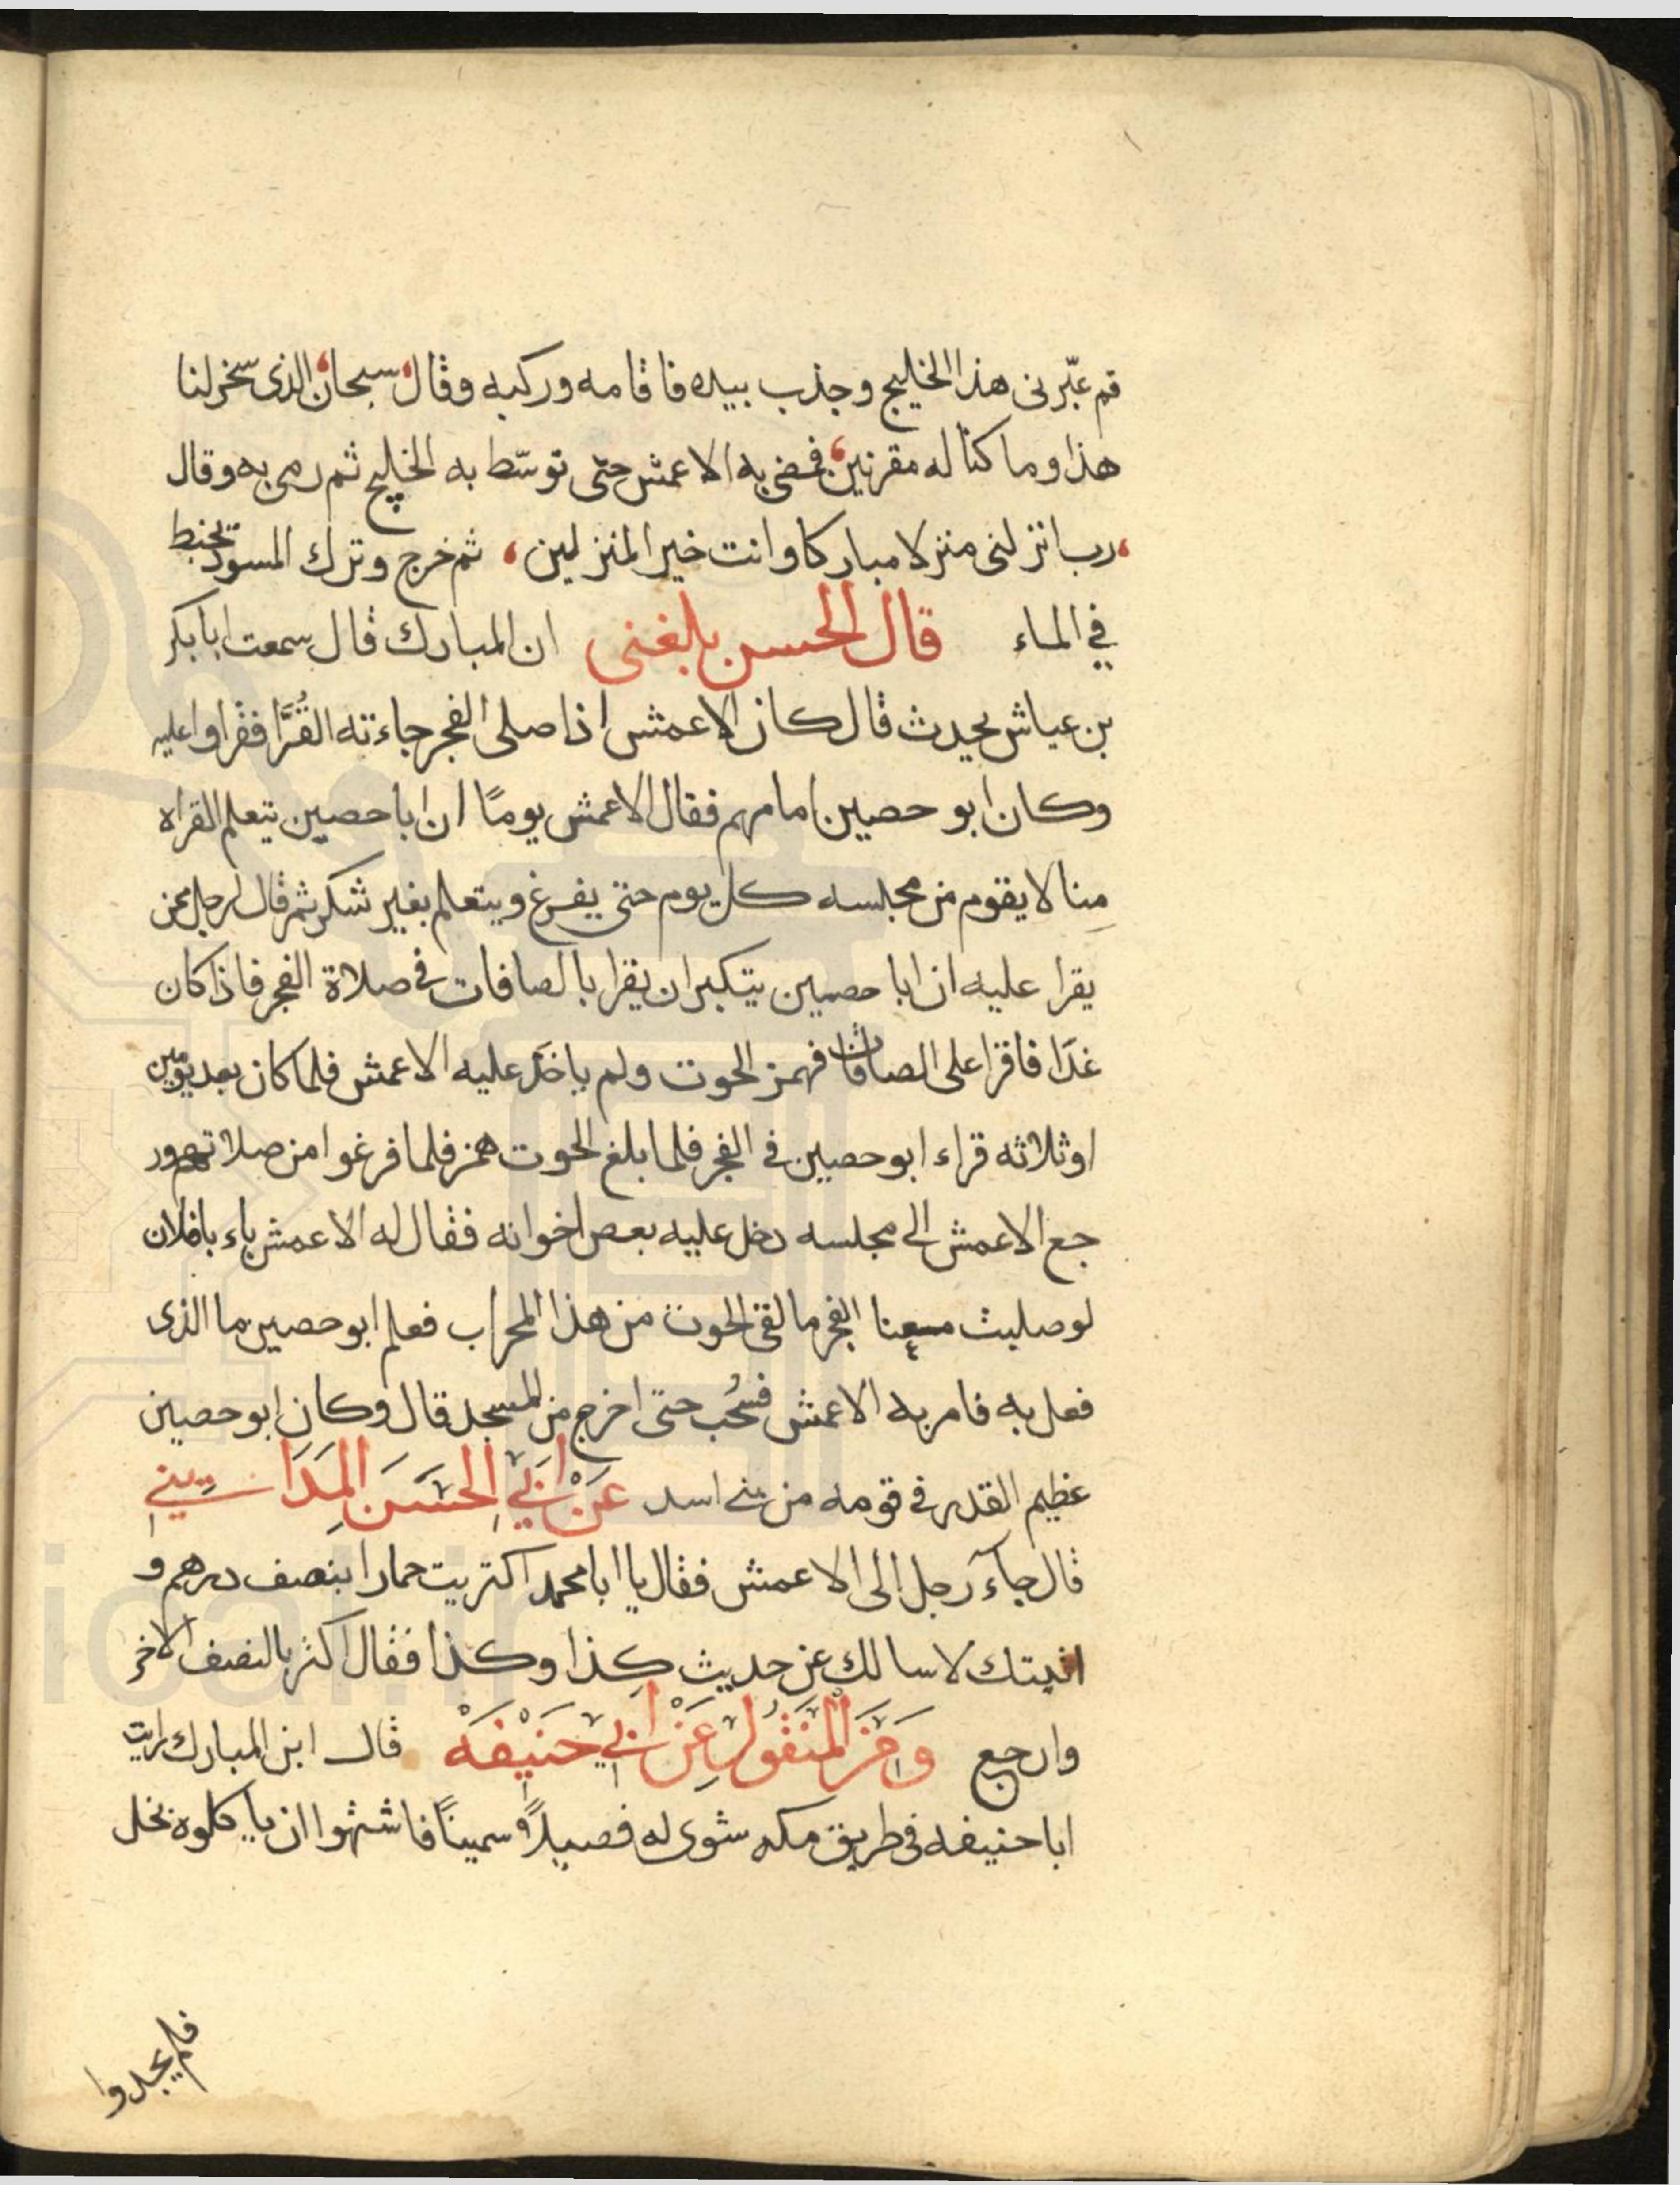 قم عبّرنى هذا الخليج وجذب بيده فاقامه وركبه وقال سبحان الذى سخر لنا
هذا وما كنا له مقرنين فمضى به الاعمش حتى توسّط به الخليج ثم رمى به وقال
رب انزلنى منزلا مباركا وانت خير المنزلين، ثم خرج وترك المسود يتخبط
في الماء قال الحسن بلغنى ان المبارك قال سمعت ابا بكر
بن عياش يحدث قال كان الاعمش اذا صلى الفجر جاءته القُرَّا فقراوا عليه
وكان ابو حصين امامهم فقال الاعمش يومًا ان ابا حصين يتعلم القراه
مِنا لا يقوم من مجلسه كل يوم حتى يفرغ ويتعلم بغير شكر ثم قال لرجل ممن
يقرا عليه ان ابا حصين يتكبر ان يقرا بالصافات فى صلاة الفجر فاذا كان
غدًا فاقرا على الصافات فهمز الحوت ولم ياخذ عليه الاعمش فلما كان بعد يومين
او ثلاثه قراء ابو حصين فى الفجر فلما بلغ الحوت همز فلما فرغوا من صلاتهم ور
جع الاعمش الى مجلسه دخل عليه بعض اخوانه فقال له الاعمش ياء يا فلان
لو صليت معنا الفجر ما لقى الحوت من هذا المحراب فعلم ابو حصين ما الذى
فعل به فامر به الاعمش فسُحب حتى اخرج من المسجد قال وكان ابو حصين
عظيم القدر فى قومه من بنى اسد عَنْ اَبِي الحَسَن المَدَايني
قال جآء رجل الى الاعمش فقال يا ابا محمد اكتريت حمارا بنصف درهم و
اتيتك لاسالك عن حديث كذا وكذا فقال اكتر بالنصف الاخر
وارجع وَمَنَ المَنْقُولِ عَنْ اَبي حَنيْفَهْ قال ابن المبارك رايت
ابا حنيفه فى طريق مكه شوى له فصيلاً سمينًا فاشتهوا ان ياكلوه بخل
فلم يجدوا